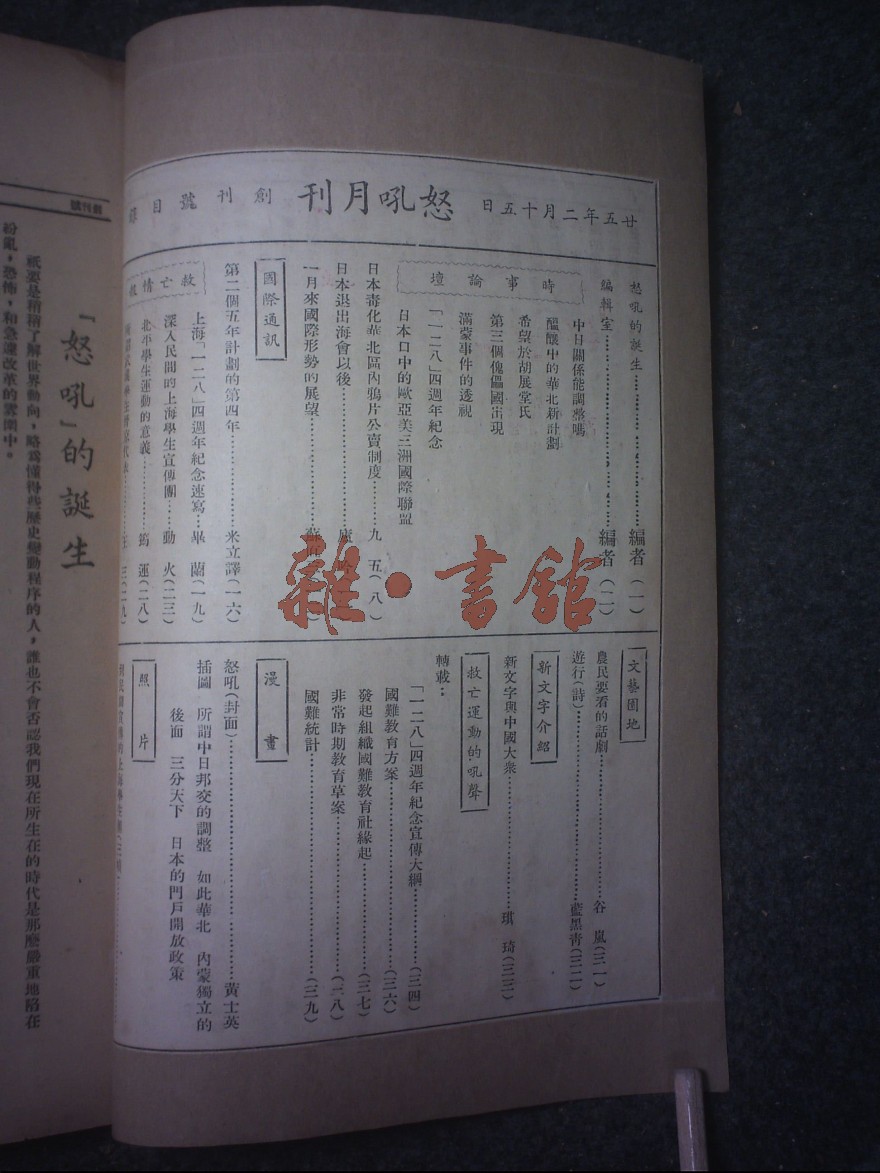 廿五年二月十五日
怒吼月刊
創刊號目錄
怒吼的誕生…………編者(一)
編輯室…………編者(二)
時事論壇
中日關係能調整嗎
醞釀中的華北新計劃
希望於胡展堂氏
第三個傀儡國出現
滿蒙事件的透視
「一二八」四週年紀念
日本口中的歐亞美三洲國際聯盟
日本毒化華北區內鴉片公賣制度…………九 五(八)
日本退出海會以後…………
一月來國際形勢的展望…………
國際通訊
第二個五年計劃的第四年…………米立譯(一六)
救亡情報
上海「一二八」四週年紀念速寫…………畢 蘭(一九)
深入民間的上海學生宣傳團…………動 火(二三)
北平學生運動的意義…………筠 運(二八)
文藝園地
農民要看的話劇…………谷 嵐(三一)
遊行(詩)…………藍黑靑(三二)
新文字介紹
新文字與中國大衆…………琪 琦(三三)
救亡運動的吼聲
轉載:
「一二八」四週年紀念宣傳大綱…………(三四)
國難教育方案…………(三六)
發起組織國難教育社緣起…………(三七)
非常時期教育草案…………(三八)
國難統計…………(三九)
漫畫
怒吼(封面)…………黃士英
插圖 所謂中日邦交的調整 如此華北 內蒙獨立的
後面 三分天下 日本的門戶開放政策
照片
雜·書館
創刊號
「怒吼」的誕生
祇要是稍稍了解世界動向,略爲懂得些歷史變動程序的人,誰也不會否認我們現在所生在的時代是那麼嚴重地陷在
紛亂,恐怖,和急遽改革的雰圍中。